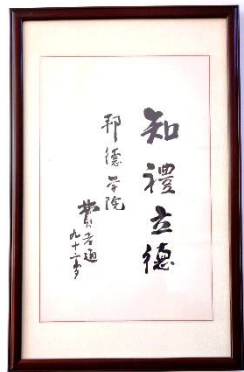 知禮立德
邦德学院
费孝通
九十二岁